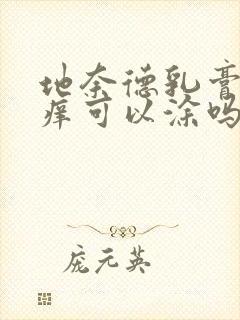 地奈德乳膏
痒可以涂吗
庞元英